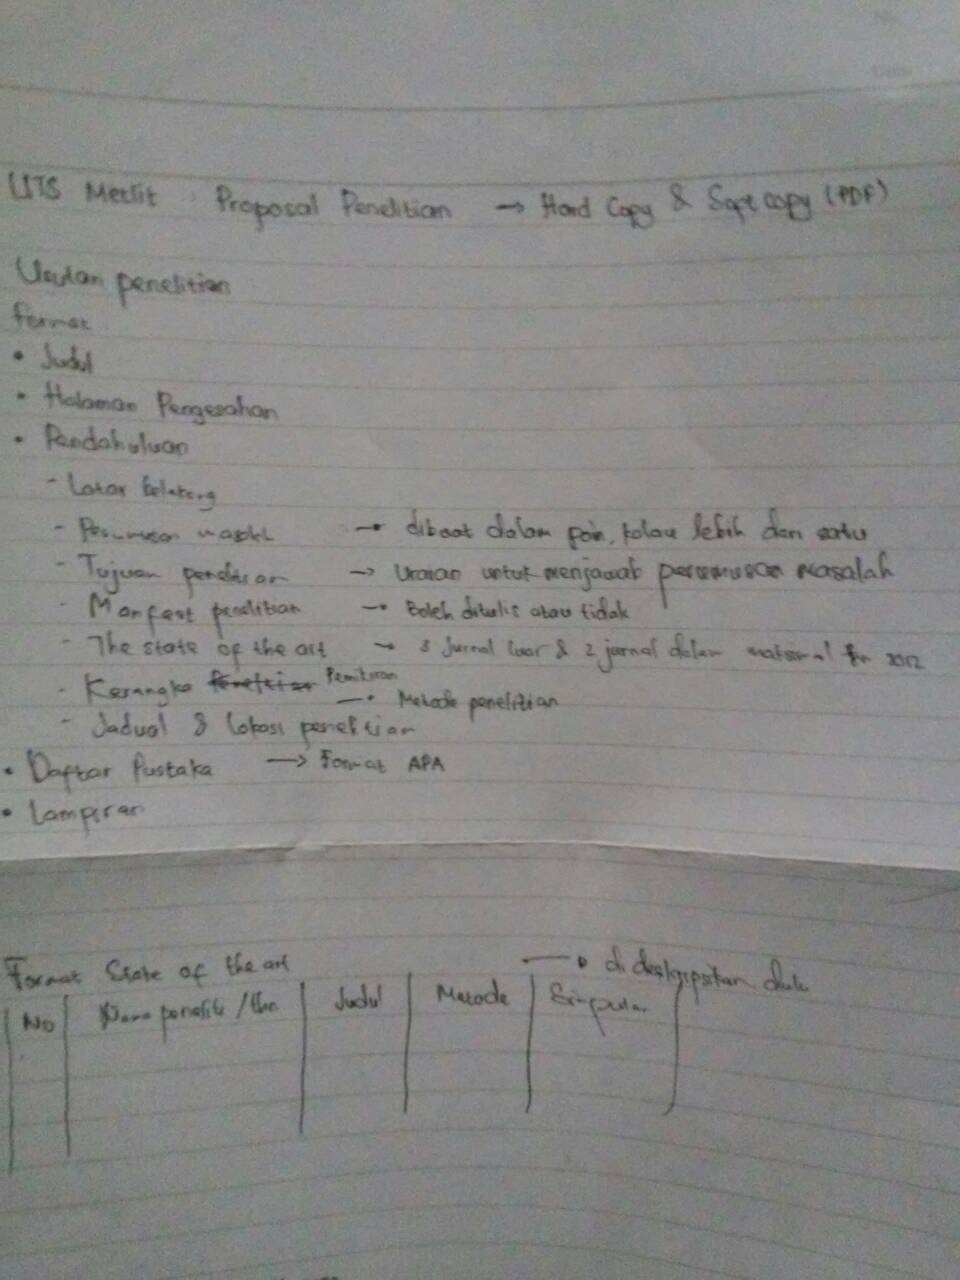 UTS Metlit : Proposal Penelitian → Hard Copy & Soft copy (PDF)
Urutan penelitian
Format
• Judul
• Halaman Pengesahan
• Pendahuluan
- Latar belakang
- Perumusan → dibuat dalam poin, kalau lebih dari satu
- Tujuan penelitian → Uraian untuk menjawab perumusan masalah
- Manfaat penelitian → Boleh ditulis atau tidak
- The state of the art → 3 Jurnal luar & 2 jurnal dalam 2012
- Kerangka Pemikiran
→ Metode penelitian
- Jadual & lokasi penelitian
• Daftar Pustaka → Format APA
• Lampiran
Format State of the art → di deskripsikan dulu
No | Nama peneliti /thn | Judul | Metode | Simpulan